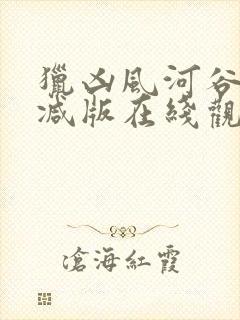 獵凶風河谷
减版在綫觀
滄海紅霞